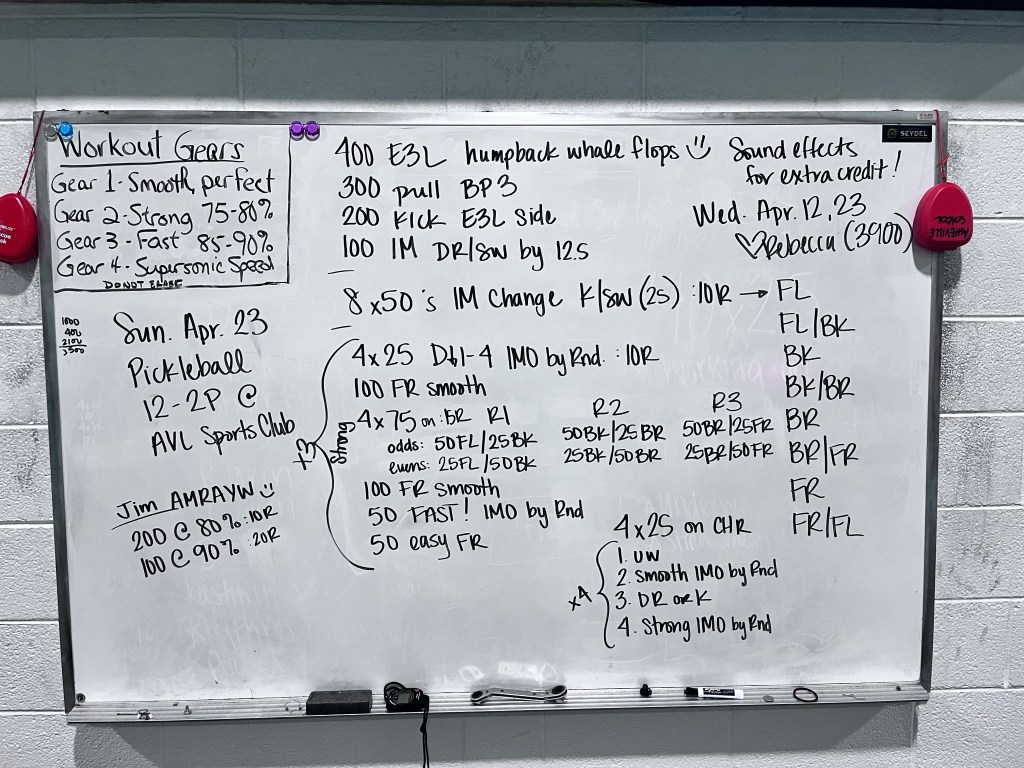 Workout Gears
Gear 1 - Smooth, perfect
Gear 2 - Strong 75-80%
Gear 3 - Fast 85-90%
Gear 4 - Supersonic Speed
DO NOT ERASE
1000
400
2100
3500
Sun. Apr. 23
Pickleball
12-2P @
AVL Sports Club
Jim AMRAYW ☺
200 @ 80% :10R
100 @ 90% :20R
400 E3L humpback whale flops ☺ Sound effects
for extra credit!
300 pull BP3
200 Kick E3L Side
100 IM DR/SW by 12.5
Wed. Apr. 12, 23
♡Rebecca (3900)
8x50's IM Change K/SW (25) :10R → FL
FL/BK
BK
BK/BR
BR
BR/FR
FR
FR/FL
x3
4x25 D↓1-4 IMO by Rnd. :10R
100 FR smooth
4x75 on :15R R1 R2 R3
odds: 50FL/25BK 50BK/25BR 50BR/25FR
evens: 25FL/50BK 25BK/50BR 25BR/50FR
100 FR smooth
50 FAST! IMO by Rnd
50 easy FR
4x25 on CHR
x4
1. UW
2. Smooth IMO by Rnd
3. DR or K
4. Strong IMO by Rnd
SEYDEL
ASHEVILLE
SCHOOL
EXPO